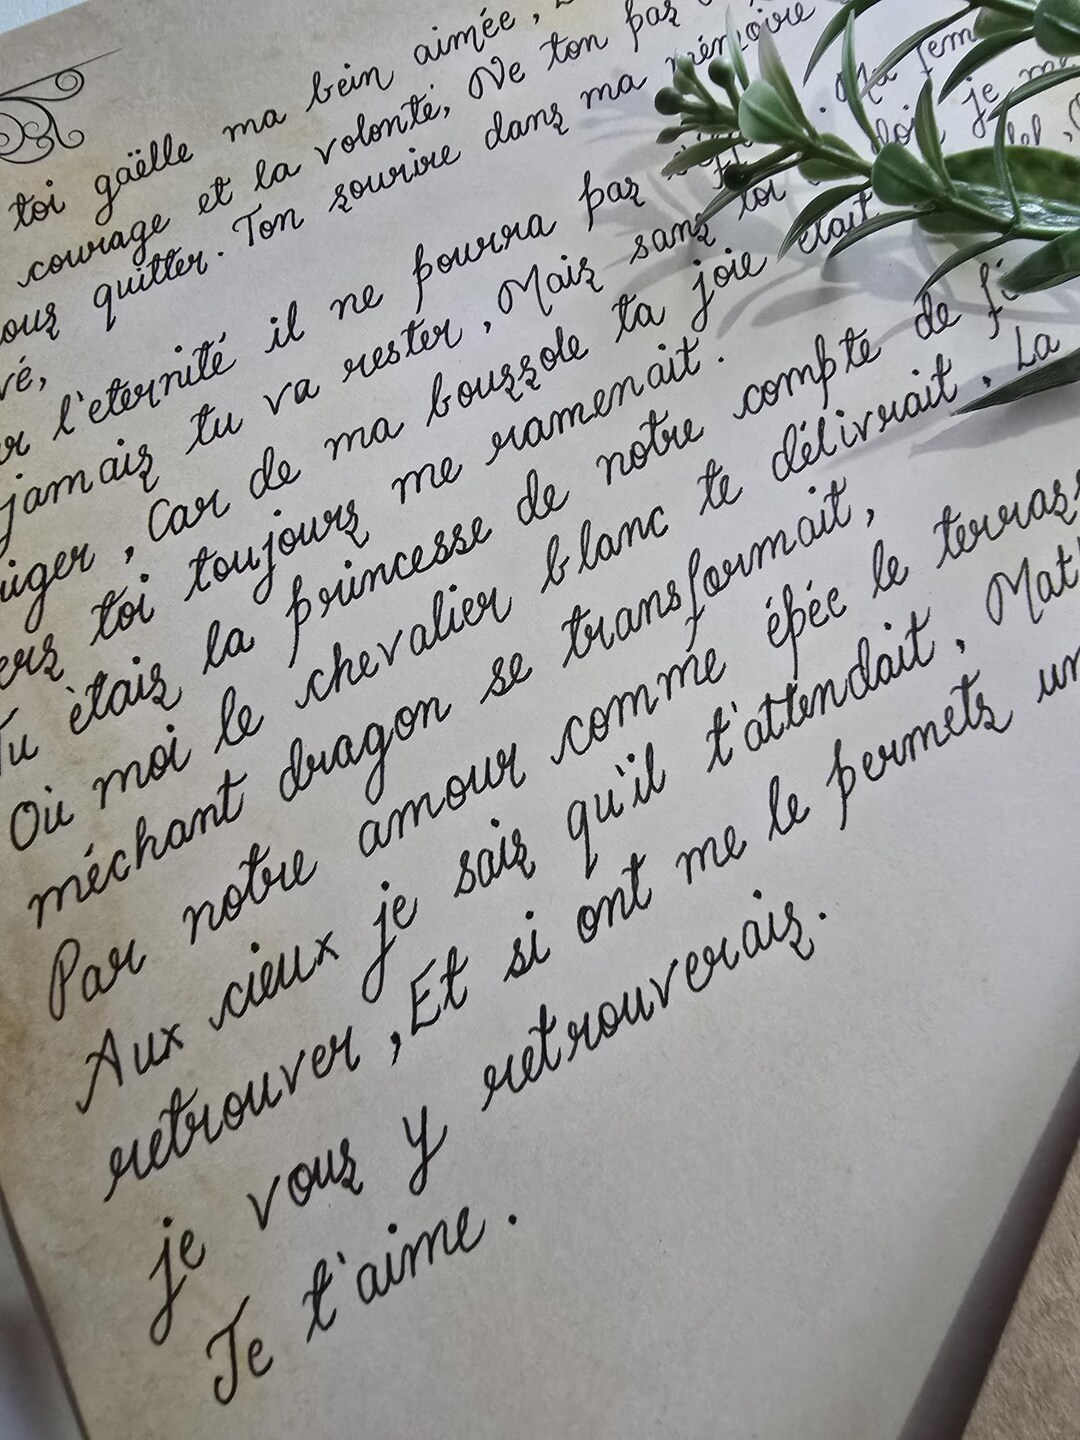 toi gaëlle ma bein aimée,
courage et la volonté, Ne ton pas
quitter. Ton sourire dans ma mémoire
l'eternité il ne pourra pas
jamais tu va rester, Mais sans toi
, Car de ma boussole ta joie était
toi toujours me ramenait.
Tu ètais la princesse de notre compte de
Où moi le chevalier blanc te délivrait. La
méchant dragon se transformait,
Par notre amour comme épée le
Aux cieux je sais qu'il t'attendait,
retrouver, Et si ont me le permets
je vous y retrouverais.
Je t'aime.